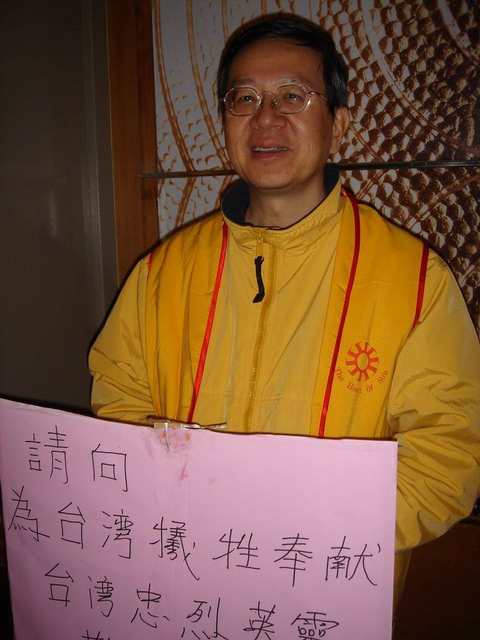 The Heart Of Sun
請向
為台湾犧牲奉献
台湾忠烈英靈